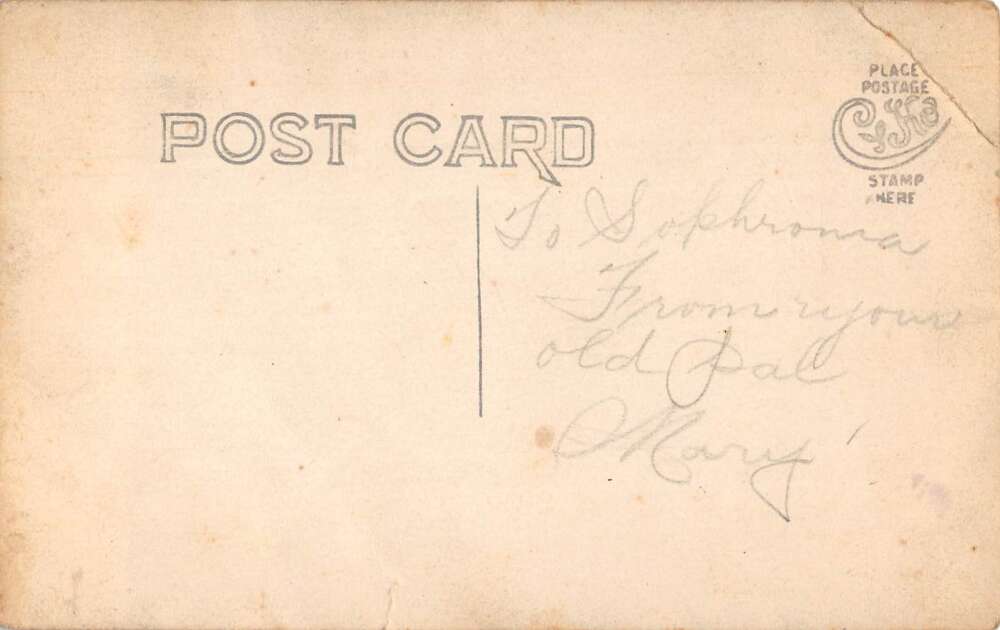 POST CARD
PLACE
POSTAGE
CYKO
STAMP
HERE
To Sophronia
From your
old pal
Mary